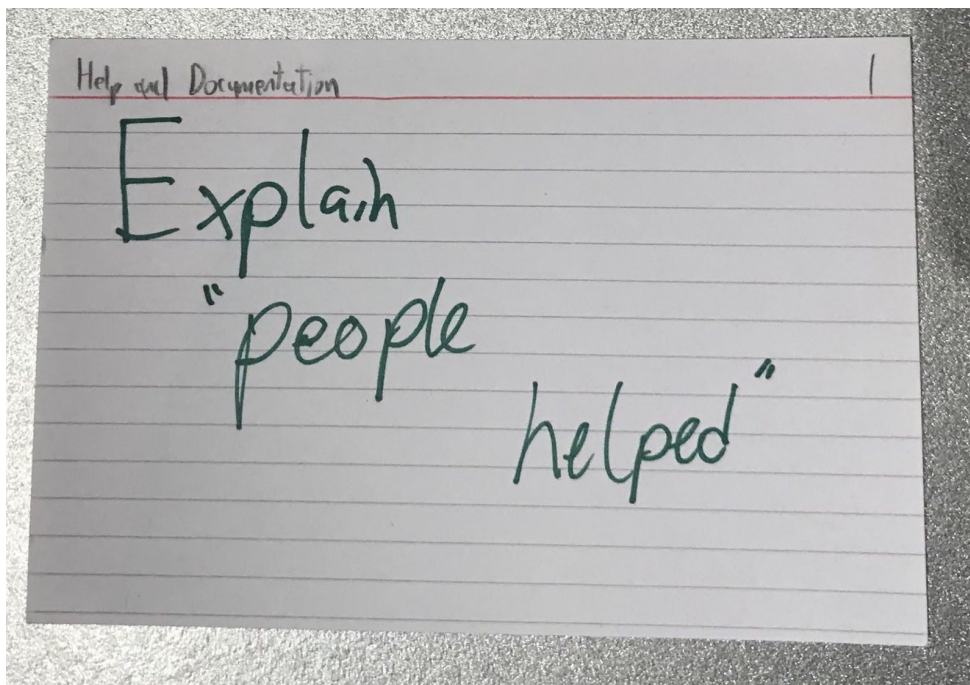 Help and Documentation 1
Explain
"people
helped"